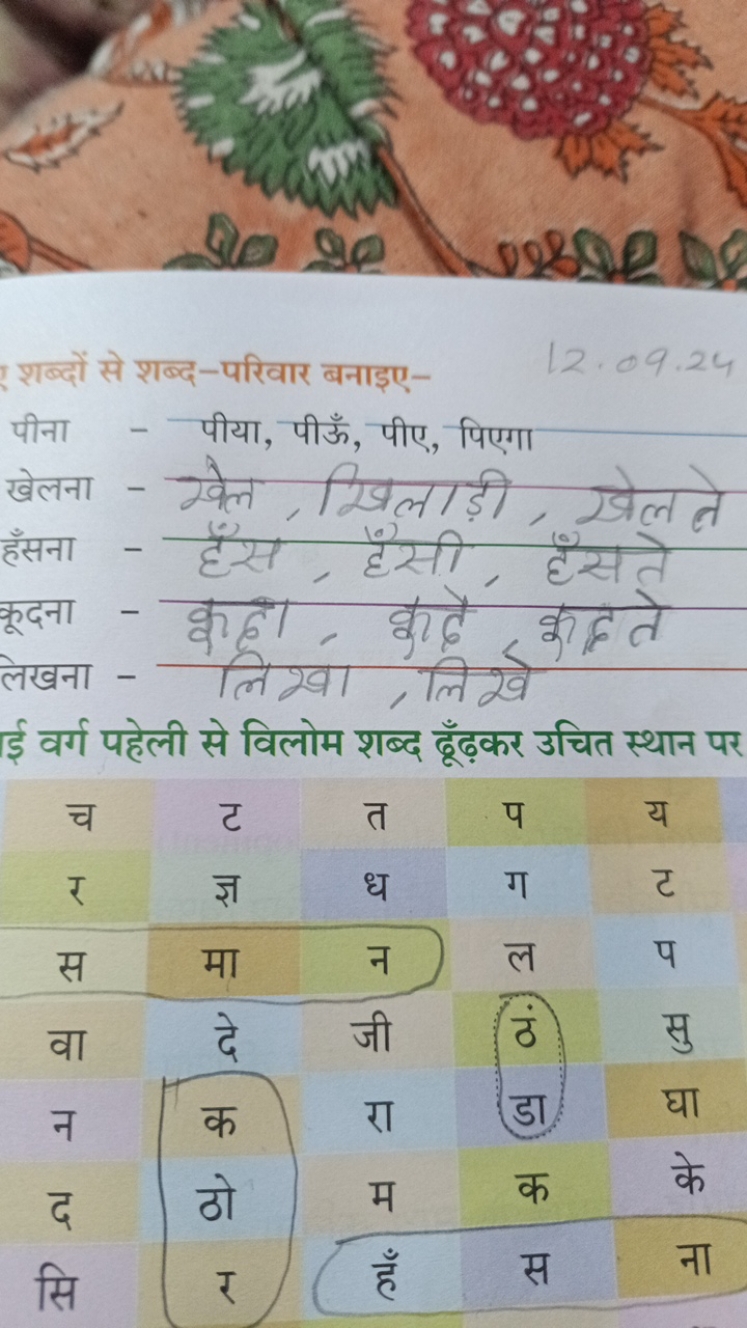 शब्दों से शब्द-परिवार बनाइए-
12.09.24
पीना - पीया, पीऊँ, पीए, पिएगा
खेलना - खेल, खिलाड़ी, खेलते
हँसना - हँस, हँसी, हँसते
कूदना - कूदा, कूदे, कूदते
लिखना - लिखा, लिखे
ई वर्ग पहेली से विलोम शब्द ढूँढ़कर उचित स्थान पर
च ट त प य
र ज्ञ ध ग ट
स मा न ल प
वा दे जी ठं सु
न क रा डा घा
द ठो म क के
सि र हँ स ना